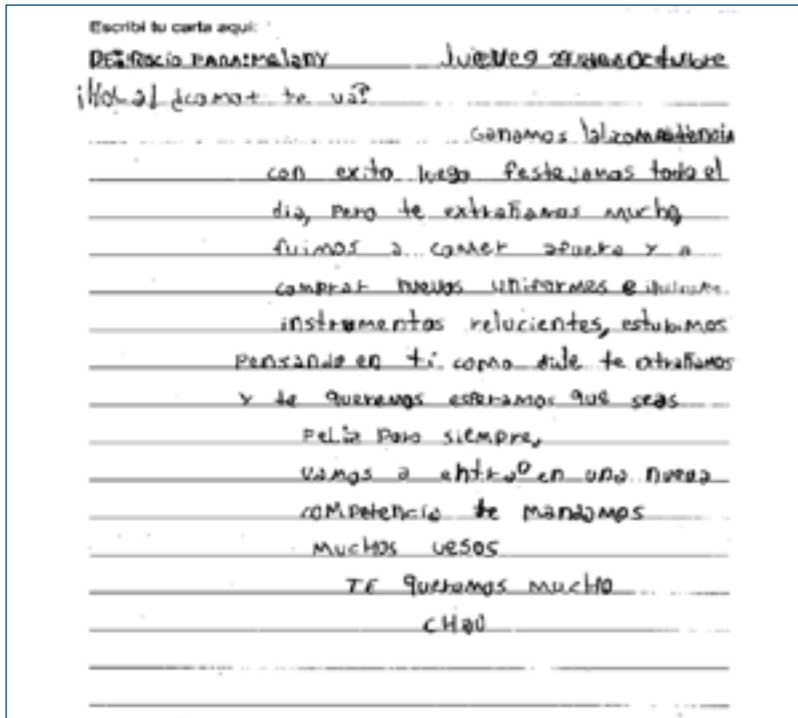 Escribí tu carta aquí:
DE: Rocío PARA: Melany Jueves 21 de Octubre
¡Hola! ¿como te va?
Ganamos la competencia
con exito luego festejamos todo el
dia, pero te extrañamos mucho,
fuimos a comer afuera y a
comprar nuevos uniformes e
instrumentos relucientes, estubimos
pensando en ti como dije te extrañamos
y te queremos esperamos que seas
Feliz para siempre,
vamos a entrar en una nueva
competencia te mandamos
muchos vesos
TE queremos mucho
CHAU